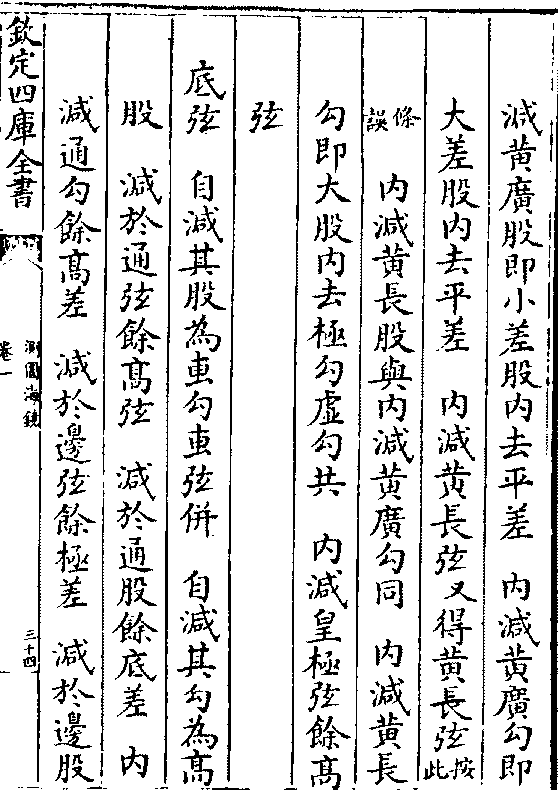 減黄廣股即小差股内去平差　内減黄廣勾即
大差股内去平差　内減黄長弦又得黄長弦按此
條誤　内減黄長股與内減黄廣勾同　内減黄長
勾即大股内去極勾虚勾共　内減皇極弦餘髙
弦
底弦　自減其股為叀勾叀弦併　自減其勾為髙
股　減於通弦餘髙弦　減於通股餘底差　内
減通勾餘髙差　減於邊弦餘極差　減於邊股
欽定四庫全書
測圓海鏡
卷一
三十四